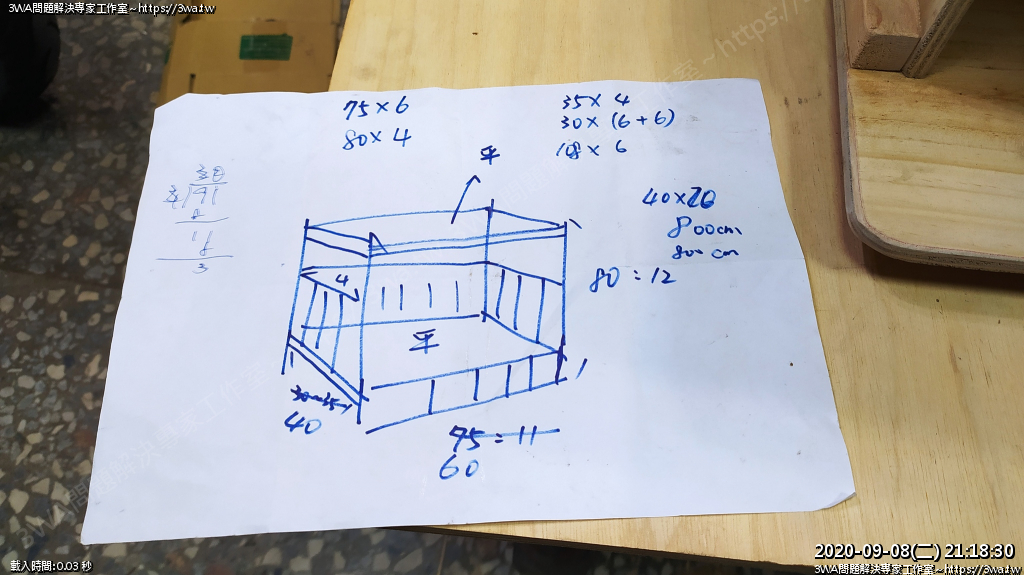 3WA問題解決專家工作室~https://3wa.tw
75×6
80×4
35×4
30×(6+6)
108×6
平
40×20
800cm
800cm
80=12
4
平
30~35
40
75=11
60
載入時間:0.03 秒
2020-09-08(二) 21:18:30
3WA問題解決專家工作室~https://3wa.tw